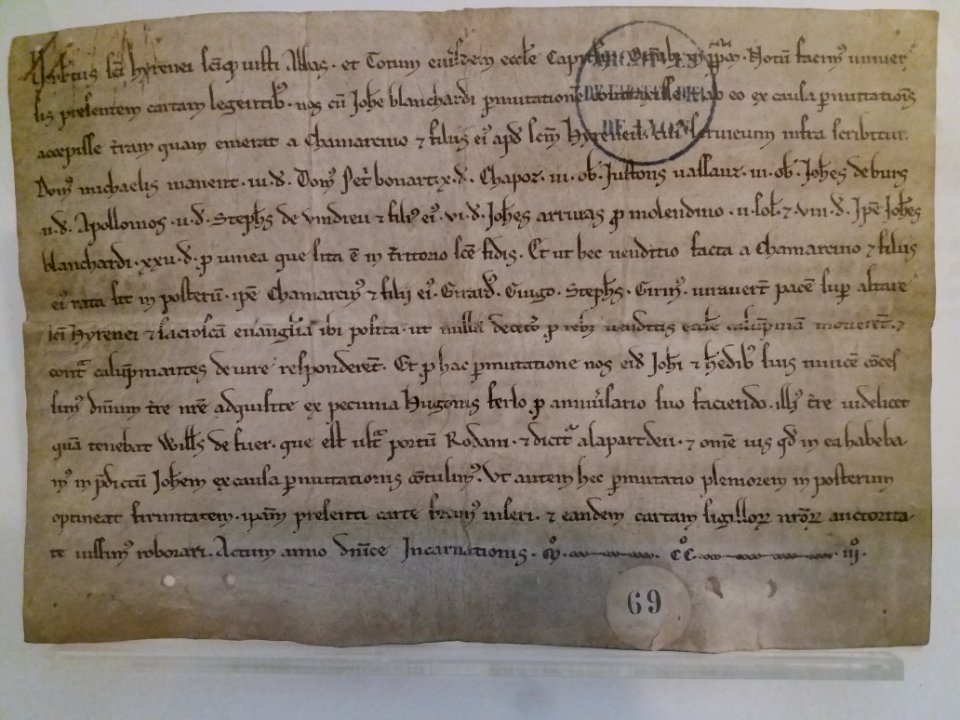 sci hyrenei sciq iusti Abbas. et Totum eiusdem eccle Capitlm. Notu facim univer
lis presentem cartam legentib. nos cu Johe blanchardi pmutatione ab eo ex causa pmutationis
accepisse tram quam emerat a Chamarcino & filiis ei apd scm Hyreneu. infra scribitur.
Dom michaelis manent. iii. d. Dom Petr bonart. x. d. Chapoz. iii. ob. iii. ob. Johes de burs
ii. d. Apollonios. ii. d. Stephs de vindreu & fili ei. vi. d. Johes arrivas p molendino. ii. sol. & viii. d. Ipe Johes
blanchardi. xxv. d. p vinea que sita e in tritorio sce fidis. Et ut hec venditio facta a Chamarcino & filiis
ei rata sit in posteru. ipe Chamarcin & filii ei. Girard. Guigo. Stephs. Girin. iuravert pace sup altare
sci Hyrenei & sacrosca evanglia ibi posita. ut nulla deceto p reb venditis eccle calupniam moverent. &
cont calupniantes de iure responderent. Et p hac pmutatione nos eid Johi & hedib suis in vice coces
sim dnium tre nre adquisite ex pecunia Hugonis ferlo p annivsario suo faciendo. illi tre videlicet
qua tenebat Wills de fuer. que est ult portu Rodani. & dicit alapart deu. & ome ius qd in ea habeba
m in pdictu Johem ex causa pmutationis cotulim. Ut autem hec pmutatio pleniorem in posterum
optineat firmitatem. presenti carte fecim inseri. & eandem cartam sigillor nror auctorita
te iussim roborari. Actum anno dnice Incarnationis. M. CC. iii.
DE LYON
69